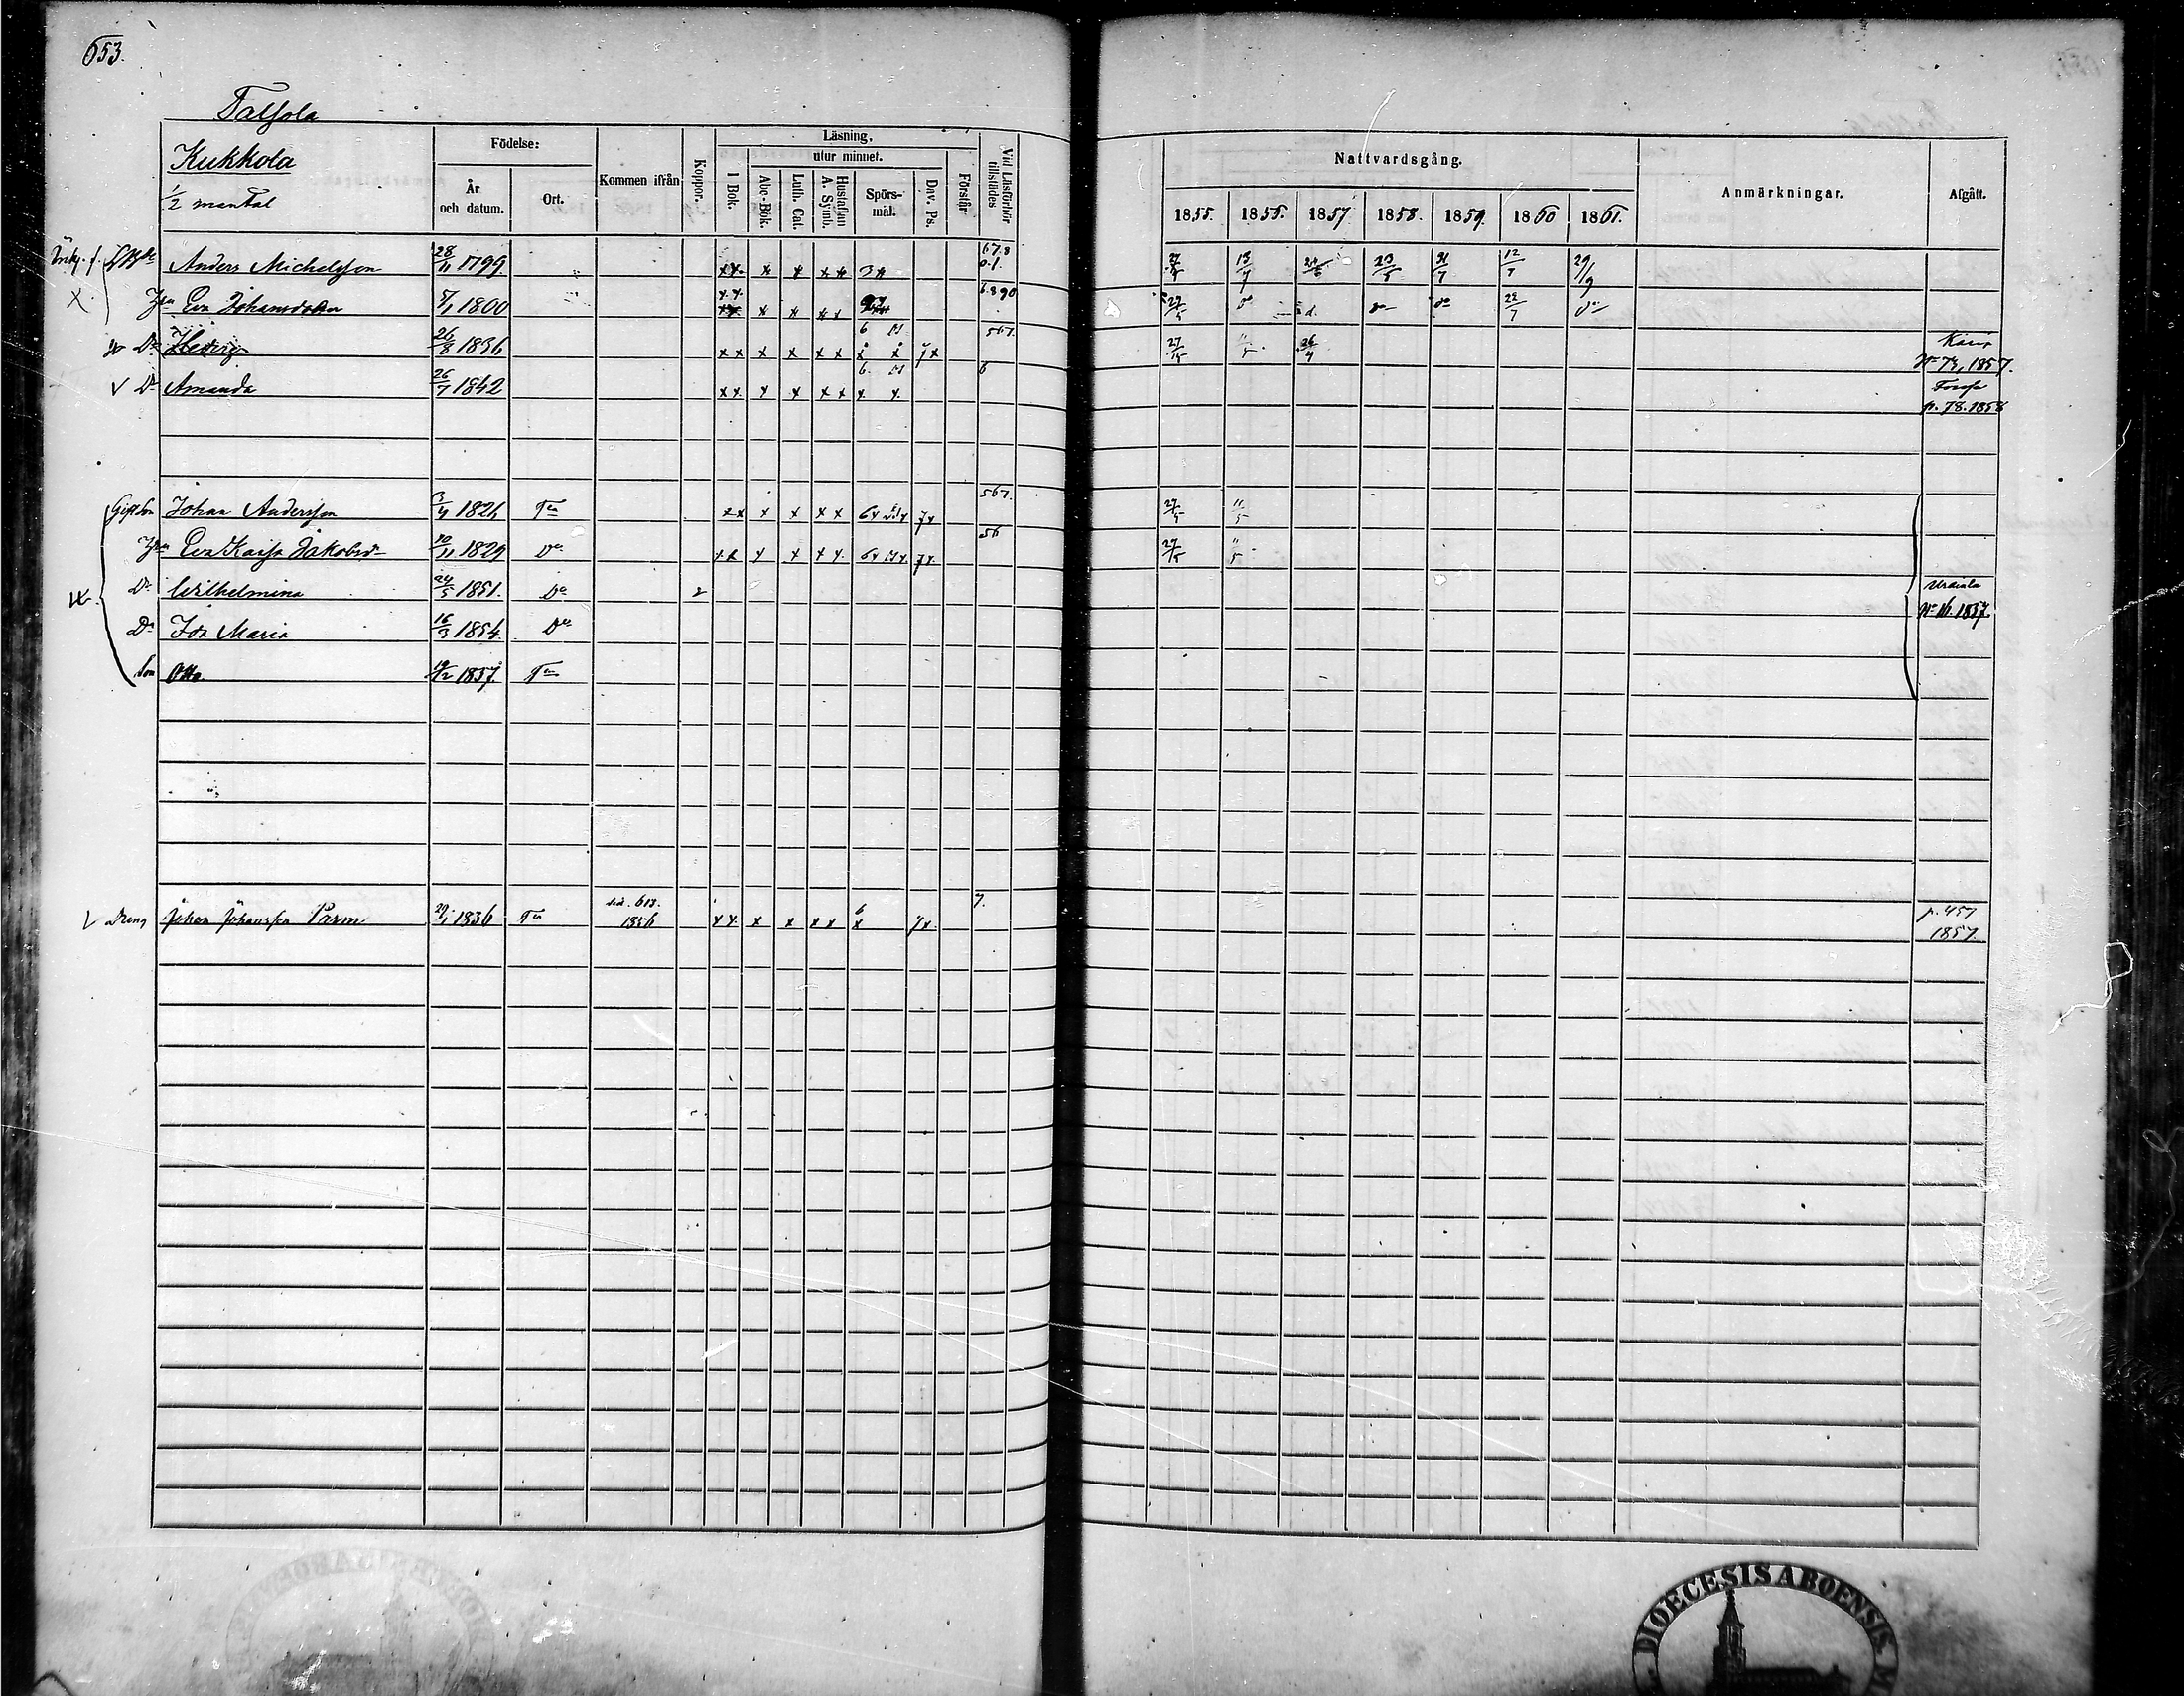 653.
Kukkola
1/2 mantal
Födelse:
År och datum.
Ort.
Kommen ifrån
Koppor.
Läsning,
utur minnet.
I Bok.
Abc-Bok.
Luth. Cat.
Hustaflan A. Symb.
Spörs-mål.
Dav. Ps.
Förstår
Vid Läsförhör tillstädes
Nattvardsgång.
1855. 1856. 1857. 1858. 1859. 1860 1861.
Anmärkningar.
Afgått.
Anders Michelsson 28/11 1799 x x x x x x 67.8 0.1. 13/7 23/5 21/7 12/7 29/9
Eva Johansdotter 1800 6.8 9 0 27/5 22/7
Dr Hedvig 26/8 1836 x x x x x x 7 x 567. 27/5 26/4 1857.
v Dr Amanda 26/7 1842 x x x x x x 6. 6 p. 78. 1858
Gift Son Johan Andersson 1826 x x x x x x 7 x 567. 27/5 11/5
Eva Kajsa Jakobsd 10/11 1829 Do x x x x x x 7 x 56 27/5 11/5
Dr Wilhelmina 24/5 1851. Do 2 Urdiala
Dr Ida Maria 16/3 1854 Do No 16. 1857.
Son Otto 1857.
Dreng Johan Johansson Parm 29/1 1836 sid. 613. 1856 x x x x x x 6 x 7 x. 7. p. 457 1857.
DIOECESIS ABOENSIS